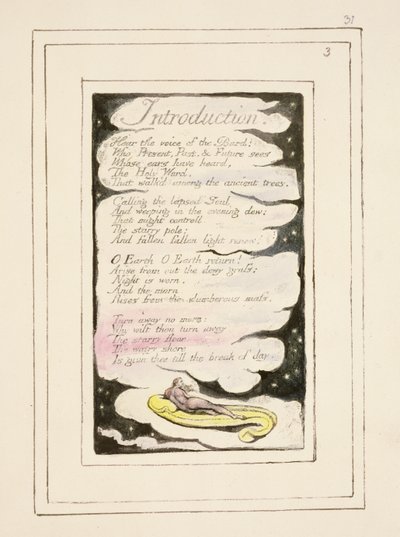 31
3
Introduction.
Hear the voice of the Bard!
Who Present, Past, & Future sees
Whose ears have heard,
The Holy Word,
That walk'd among the ancient trees.
Calling the lapsed Soul
And weeping in the evening dew:
That might controll
The starry pole;
And fallen fallen light renew!
O Earth O Earth return!
Arise from out the dewy grass;
Night is worn,
And the morn
Rises from the slumberous mass.
Turn away no more:
Why wilt thou turn away
The starry floor
The watry shore
Is giv'n thee till the break of day.